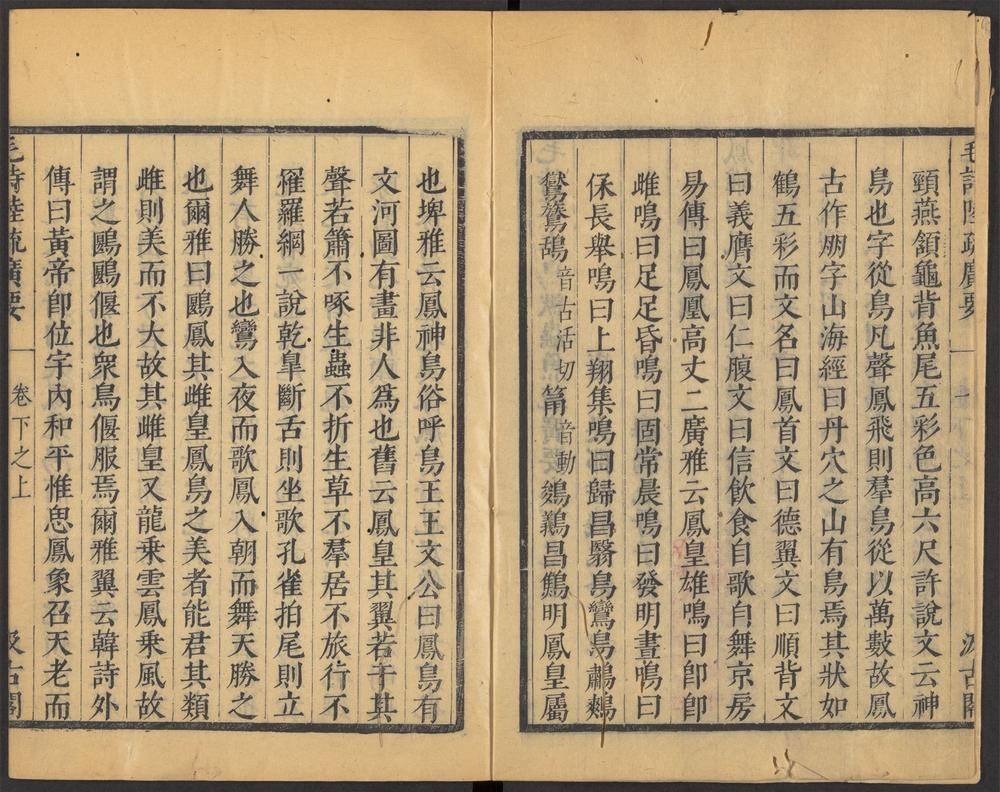 毛詩陸疏廣要
頸燕頷龜背魚尾五彩色高六尺許說文云神
鳥也字從鳥凡聲鳳飛則羣鳥從以萬數故鳳
古作朋字山海經曰丹穴之山有鳥焉其狀如
鶴五彩而文名曰鳳首文曰德翼文曰順背文
曰義膺文曰仁腹文曰信飲食自歌自舞京房
易傳曰鳳凰高丈二廣雅云鳳皇雄鳴曰卽卽
雌鳴曰足足昏鳴曰固常晨鳴曰發明晝鳴曰
保長舉鳴曰上翔集鳴曰歸昌翳鳥鸞鳥鷫鷞
鸑鷟鴰音古活切筩音動鵕鸃昌鷦明鳳皇屬
也埤雅云鳳神鳥俗呼鳥王王文公曰鳳鳥有
文河圖有畫非人爲也舊云鳳皇其翼若干其
聲若簫不啄生蟲不折生草不羣居不旅行不
罹羅網一說乾臯斷舌則坐歌孔雀拍尾則立
舞人勝之也鸞入夜而歌鳳入朝而舞天勝之
也爾雅曰鶠鳳其雌皇鳳鳥之美者能君其類
雌則美而不大故其雌皇又龍乘雲鳳乘風故
謂之鶠鶠偃也衆鳥偃服焉爾雅翼云韓詩外
傳曰黃帝卽位宇內和平惟思鳳象召天老而
毛詩陸疏廣要 卷下之上 汲古閣